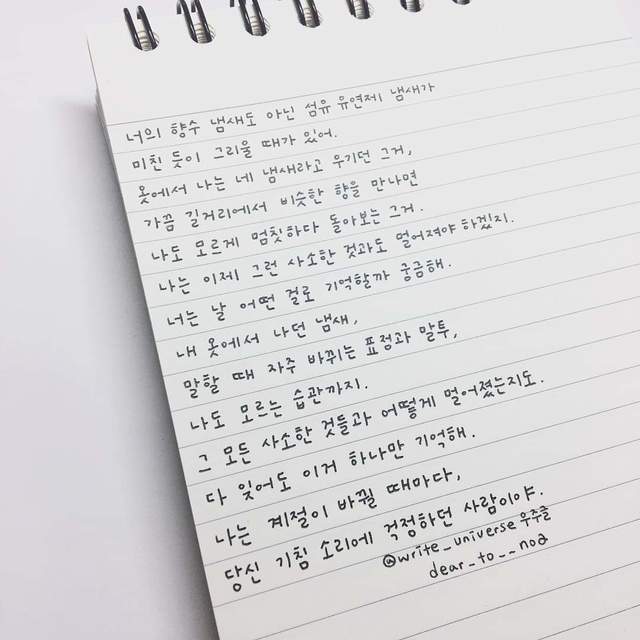 너의 향수 냄새도 아닌 섬유 유연제 냄새가
미친 듯이 그리울 때가 있어.
옷에서 나는 네 냄새라고 우기던 그거,
가끔 길거리에서 비슷한 향을 만나면
나도 모르게 멈칫하다 돌아보는 그거.
나는 이제 그런 사소한 것과도 멀어져야 하겠지.
너는 날 어떤 걸로 기억할까 궁금해.
내 옷에서 나던 냄새,
말할 때 자주 바뀌는 표정과 말투,
나도 모르는 습관까지.
그 모든 사소한 것들과 어떻게 멀어졌는지도.
다 잊어도 이거 하나만 기억해.
나는 계절이 바뀔 때마다,
당신 기침 소리에 걱정하던 사람이야.
@write_universe 우주글
dear_to__noa